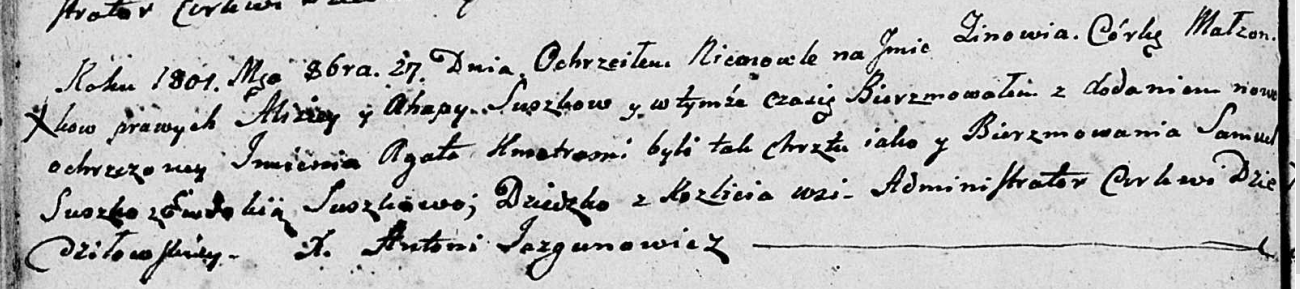 strator Cerkwi
Roku 1801. Msca 8bra. 27. Dnia. Ochrzciłem Niemowle na Jmie Zinowia. Córkę Małżon.
kow prawych Alxiey y Ahapy. Suszkow y w tymże czasię Bierzmowałem z dodaniem nowo
ochrzczoney Jmienia Agata Kmotrami byli tak Chrztu iako y Bierzmowania Samuel
Suszko z Ewdokią Suszkowo; Dziecko z Kozlicia wsi. Administrator Cerkwi Dzie
dziłowskiey. X. Antoni Jazgunowicz